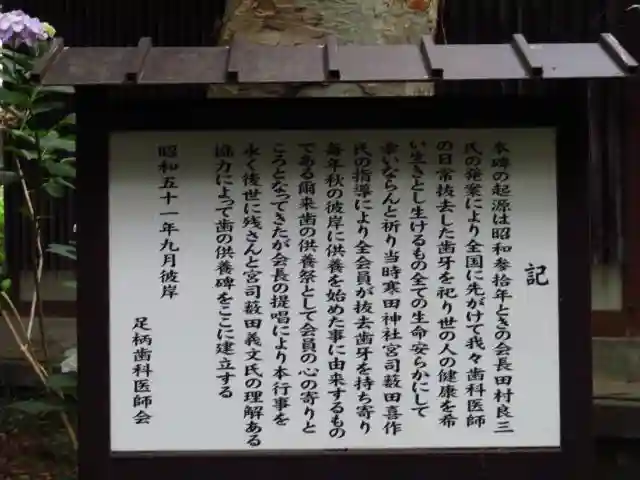 記
本碑の起源は昭和参拾年ときの会長田村良三
氏の発案により全国に先がけて我々歯科医師
の日常抜去した歯牙を祀り世の人の健康を希
い生きとし生けるもの全ての生命安らかにして
幸いならんと祈り当時寒田神社宮司薮田喜作
氏の指導により全会員が抜去歯牙を持ち寄り
毎年秋の彼岸に供養を始めた事に由来するもの
である爾来歯の供養祭として会員の心の寄りと
ころとなってきたが会長の提唱により本行事を
永く後世に残さんと宮司薮田義文氏の理解ある
協力によって歯の供養碑をここに建立する
昭和五十一年九月彼岸
足柄歯科医師会